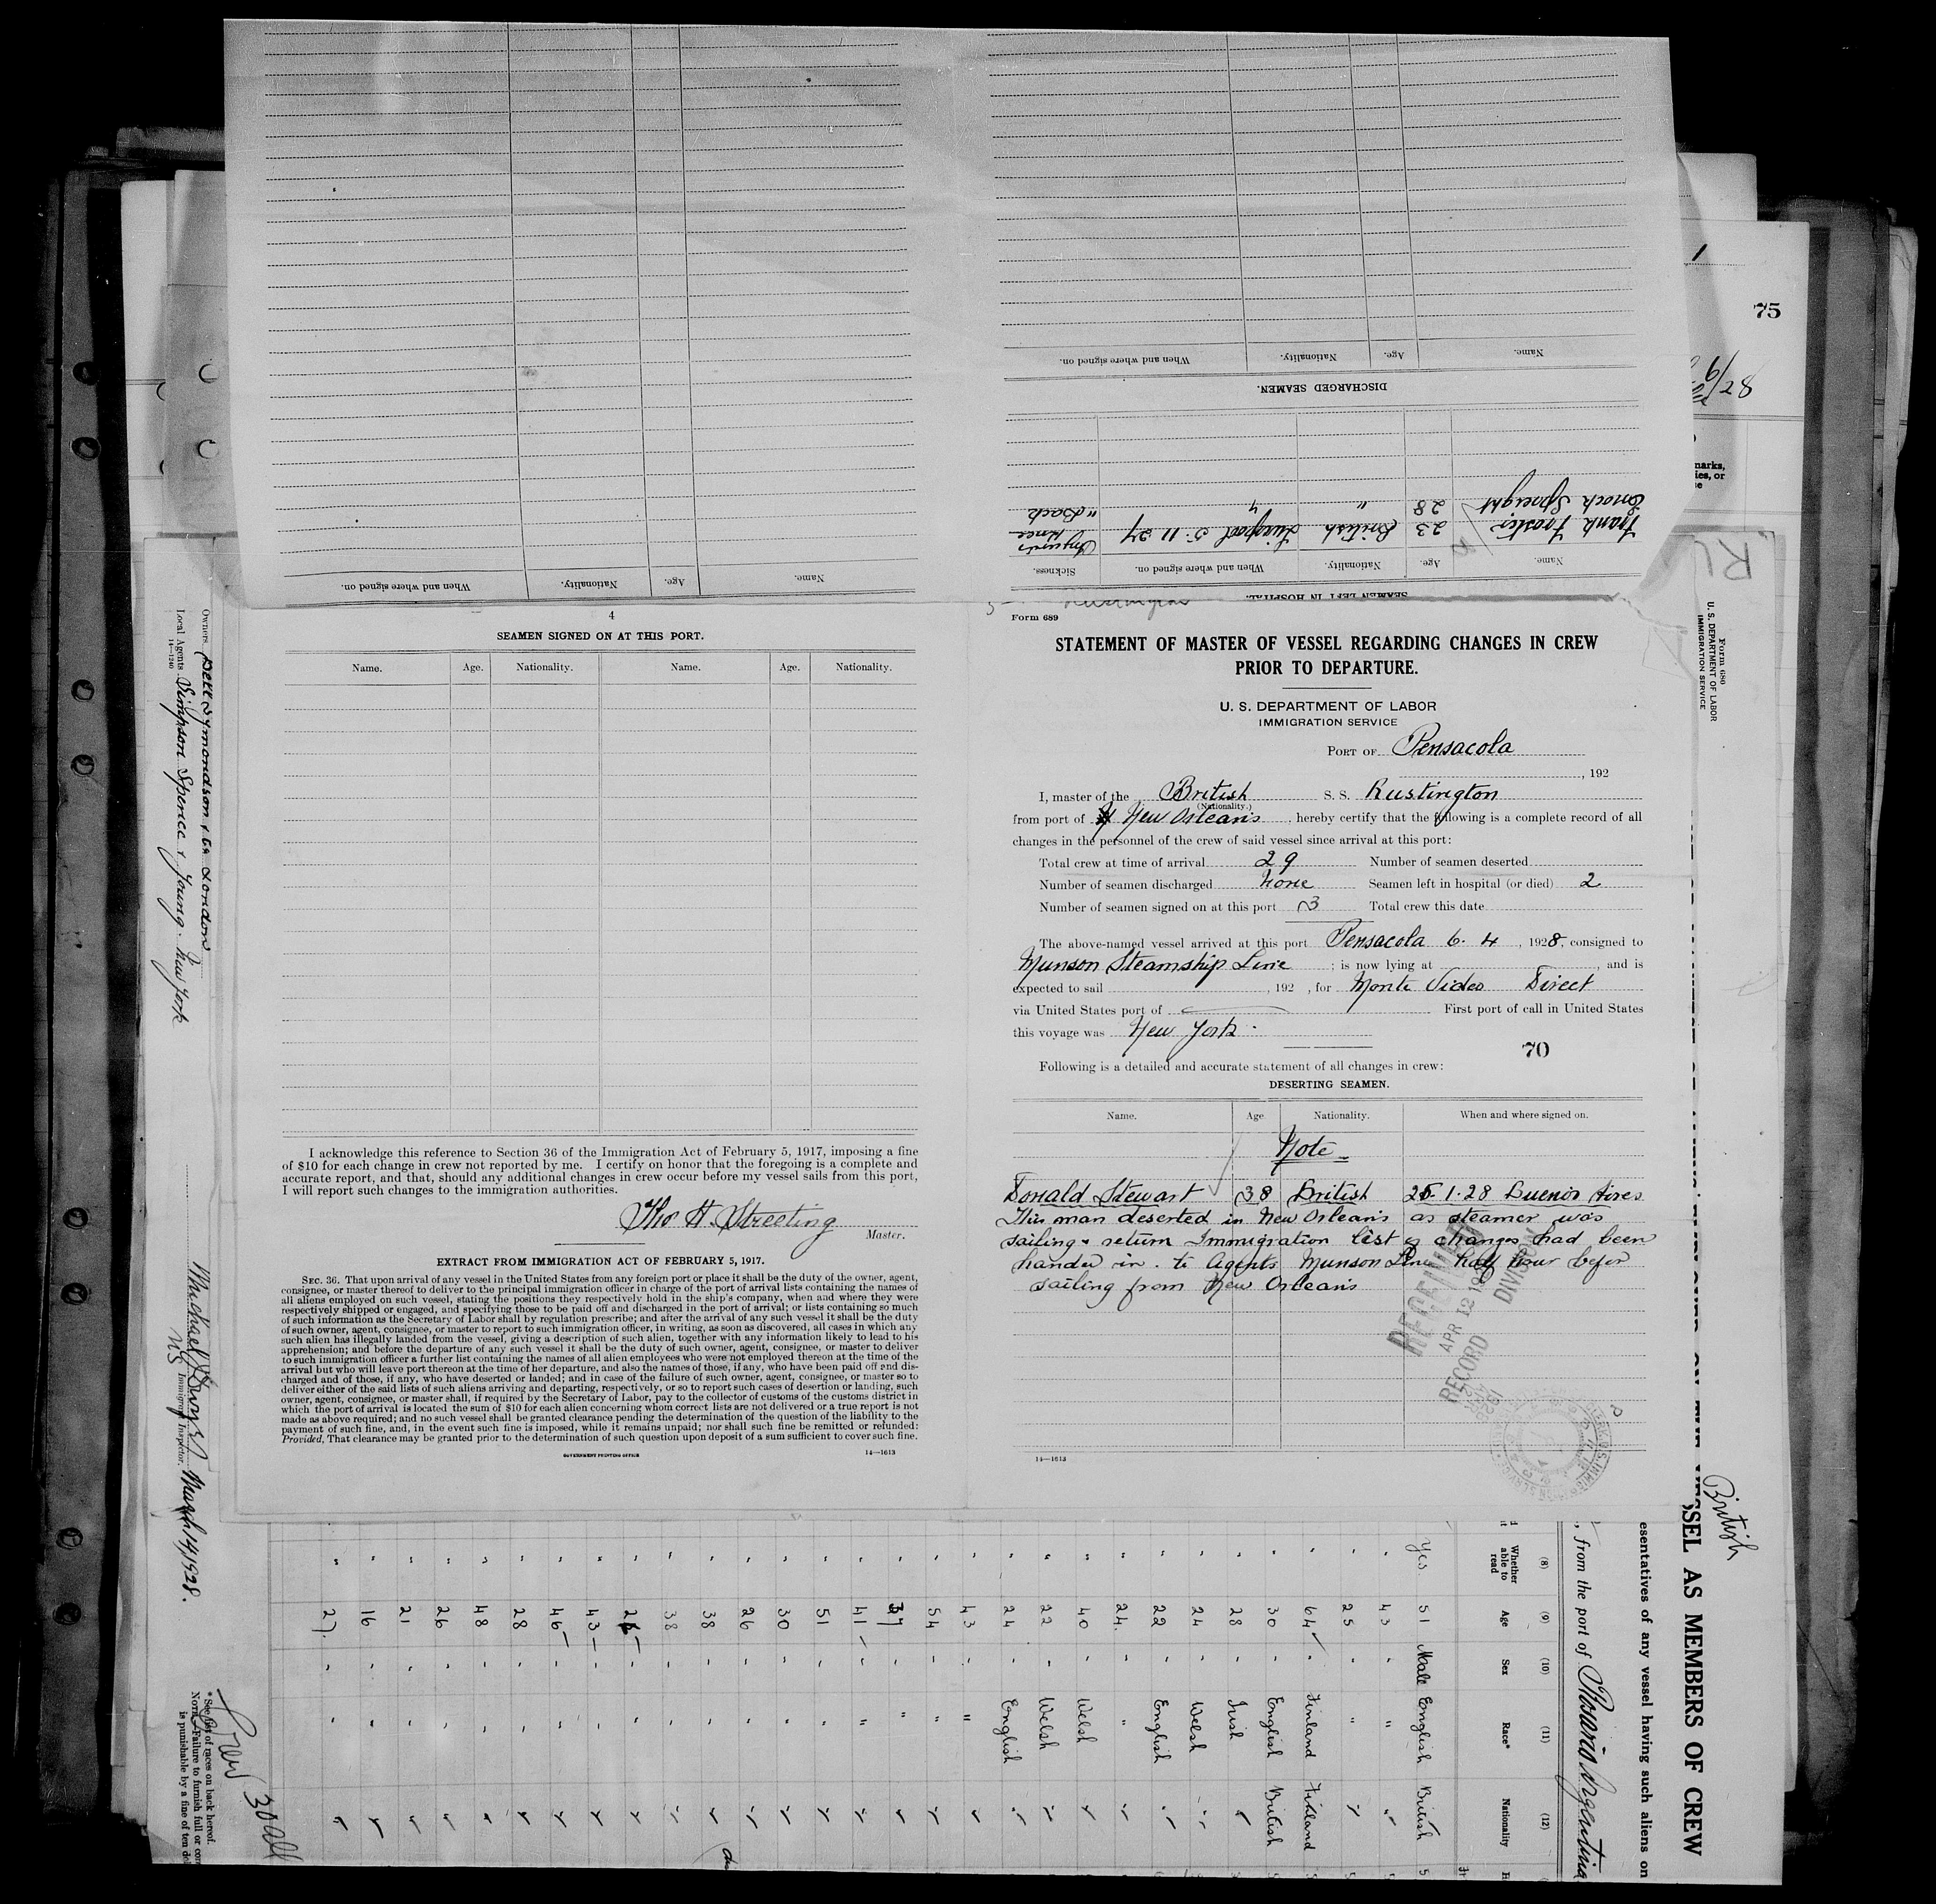 Name.
Age.
Nationality.
When and where signed on.
SEAMEN LEFT IN HOSPITAL.
Name.
Age.
Nationality.
When and where signed on.
Sickness.
Frank Foster 23 British Liverpool 5.11.27
Enoch Speight 28 " " " Back
DISCHARGED SEAMEN.
Name.
Age.
Nationality.
When and where signed on.
4
SEAMEN SIGNED ON AT THIS PORT.
Name. Age. Nationality. Name. Age. Nationality.
I acknowledge this reference to Section 36 of the Immigration Act of February 5, 1917, imposing a fine
of $10 for each change in crew not reported by me. I certify on honor that the foregoing is a complete and
accurate report, and that, should any additional changes in crew occur before my vessel sails from this port,
I will report such changes to the immigration authorities.
Tho H. Streeting
Master.
EXTRACT FROM IMMIGRATION ACT OF FEBRUARY 5, 1917.
SEC. 36. That upon arrival of any vessel in the United States from any foreign port or place it shall be the duty of the owner, agent,
consignee, or master thereof to deliver to the principal immigration officer in charge of the port of arrival lists containing the names of
all aliens employed on such vessel, stating the positions they respectively hold in the ship's company, when and where they were
respectively shipped or engaged, and specifying those to be paid off and discharged in the port of arrival; or lists containing so much
of such information as the Secretary of Labor shall by regulation prescribe; and after the arrival of any such vessel it shall be the duty
of such owner, agent, consignee, or master to report to such immigration officer, in writing, as soon as discovered, all cases in which any
such alien has illegally landed from the vessel, giving a description of such alien, together with any information likely to lead to his
apprehension; and before the departure of any such vessel it shall be the duty of such owner, agent, consignee, or master to deliver
to such immigration officer a further list containing the names of all alien employees who were not employed thereon at the time of the
arrival but who will leave port thereon at the time of her departure, and also the names of those, if any, who have been paid off and dis-
charged and of those, if any, who have deserted or landed; and in case of the failure of such owner, agent, consignee, or master so to
deliver either of the said lists of such aliens arriving and departing, respectively, or so to report such cases of desertion or landing, such
owner, agent, consignee, or master shall, if required by the Secretary of Labor, pay to the collector of customs of the customs district in
which the port of arrival is located the sum of $10 for each alien concerning whom correct lists are not delivered or a true report is not
made as above required; and no such vessel shall be granted clearance pending the determination of the question of the liability to the
payment of such fine, and, in the event such fine is imposed, while it remains unpaid; nor shall such fine be remitted or refunded:
Provided, That clearance may be granted prior to the determination of such question upon deposit of a sum sufficient to cover such fine.
GOVERNMENT PRINTING OFFICE
14—1613
Form 689
STATEMENT OF MASTER OF VESSEL REGARDING CHANGES IN CREW
PRIOR TO DEPARTURE.
U. S. DEPARTMENT OF LABOR
IMMIGRATION SERVICE
PORT OF Pensacola
, 192
I, master of the British S. S. Rustington
(Nationality.)
from port of New Orleans, hereby certify that the following is a complete record of all
changes in the personnel of the crew of said vessel since arrival at this port:
Total crew at time of arrival 29 Number of seamen deserted
Number of seamen discharged None Seamen left in hospital (or died) 2
Number of seamen signed on at this port 3 Total crew this date
The above-named vessel arrived at this port Pensacola 6. 4, 1928, consigned to
Munson Steamship Line; is now lying at , and is
expected to sail , 192 , for Monte Video Direct
via United States port of First port of call in United States
this voyage was New York.
70
Following is a detailed and accurate statement of all changes in crew:
DESERTING SEAMEN.
Name. Age. Nationality. When and where signed on.
Note
Donald Stewart 38 British 25.1.28 Buenos Aires
This man deserted in New Orleans as steamer was
sailing & return Immigration list of changes had been
handed in. to Agents Munson Line half hour before
sailing from New Orleans
RECEIVED
APR 12 1928
RECORD DIVISION
14—1613
75
9/28
Form 680
U. S. DEPARTMENT OF LABOR
IMMIGRATION SERVICE
British
SSEL AS MEMBERS OF CREW
esentatives of any vessel having such aliens on
, from the port of Rosario Argentina
(8) (9) (10) (11) (12)
Whether able to read
Age
Sex
Race*
Nationality
Yes 51 Male English British
" 43 " " "
" 25 " " "
" 64 " Finland Finland
" 30 " English British
" 28 " Irish "
" 24 " Welsh "
" 22 " English "
" 24 " " "
" 40 " Welsh "
" 22 " Welsh "
" 24 " English "
" 43 " " "
" 54 " " "
" 37 " " "
" 41 " " "
" 51 " " "
" 30 " " "
" 26 " " "
" 38 " " "
" 38 " " "
" 43 " " "
" 46 " " "
" 28 " " "
" 48 " " "
" 26 " " "
" 21 " " "
" 16 " " "
" 27 " " "
Crew 30 all
Owners Bell Symondson & Co London
Local Agents Simpson Spence & Young. New York
14—1240
Immigrant Inspector.
March 14, 1928.
* See list of races on back hereof.
NOTE.—Failure to furnish full or
is punishable by a fine of ten